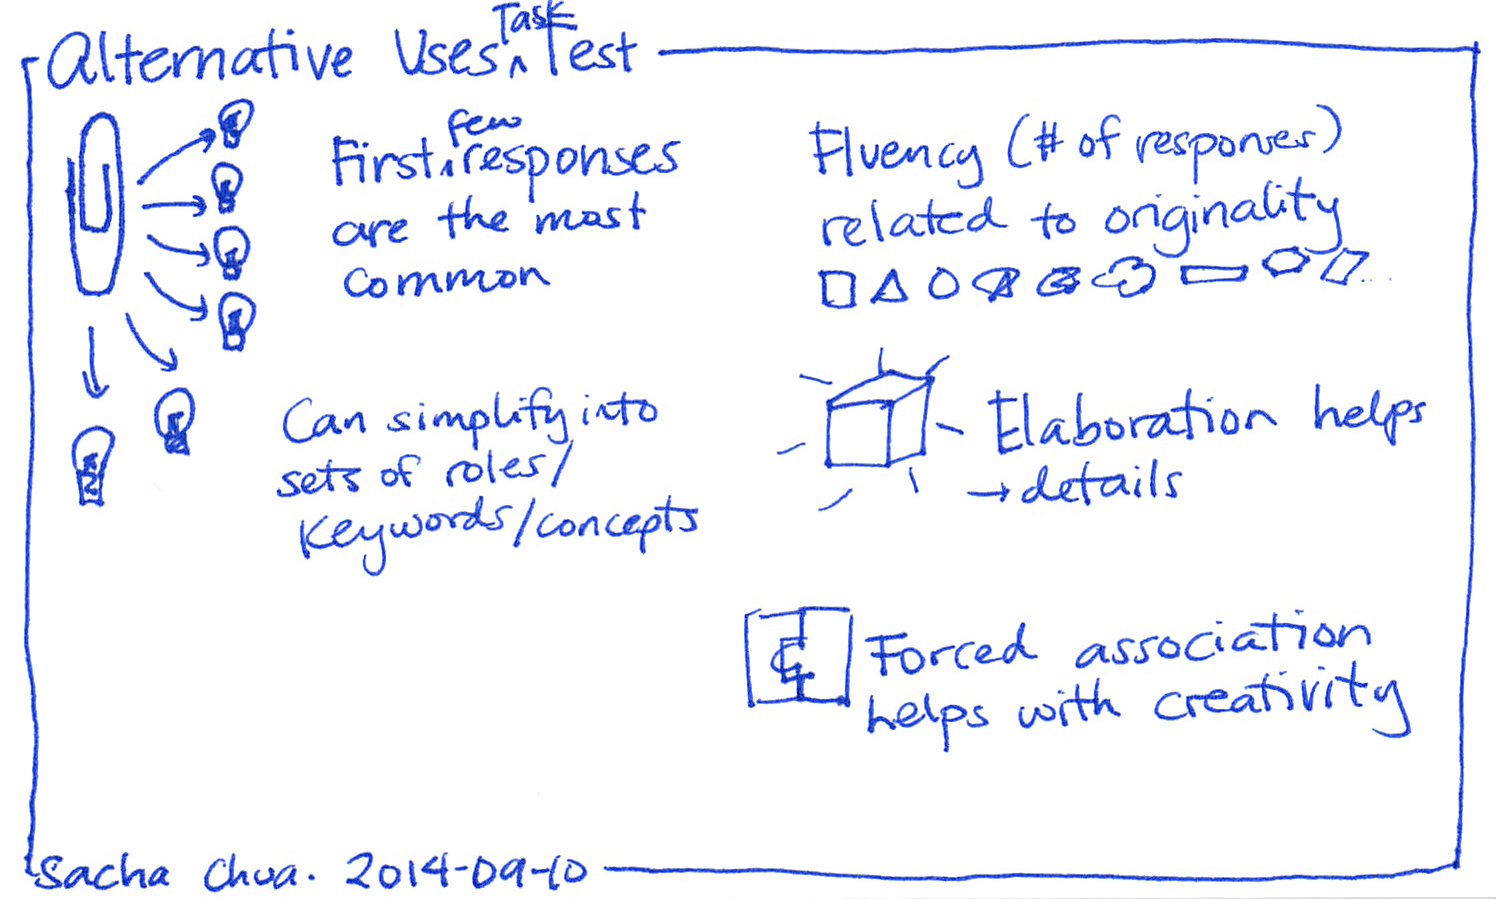 Alternative Uses Task Test
First few responses
are the most
common
Fluency (# of responses)
related to originality
Can simplify into
sets of roles/
keywords/concepts
Elaboration helps
→ details
Forced association
helps with creativity
Sacha Chua. 2014-09-10